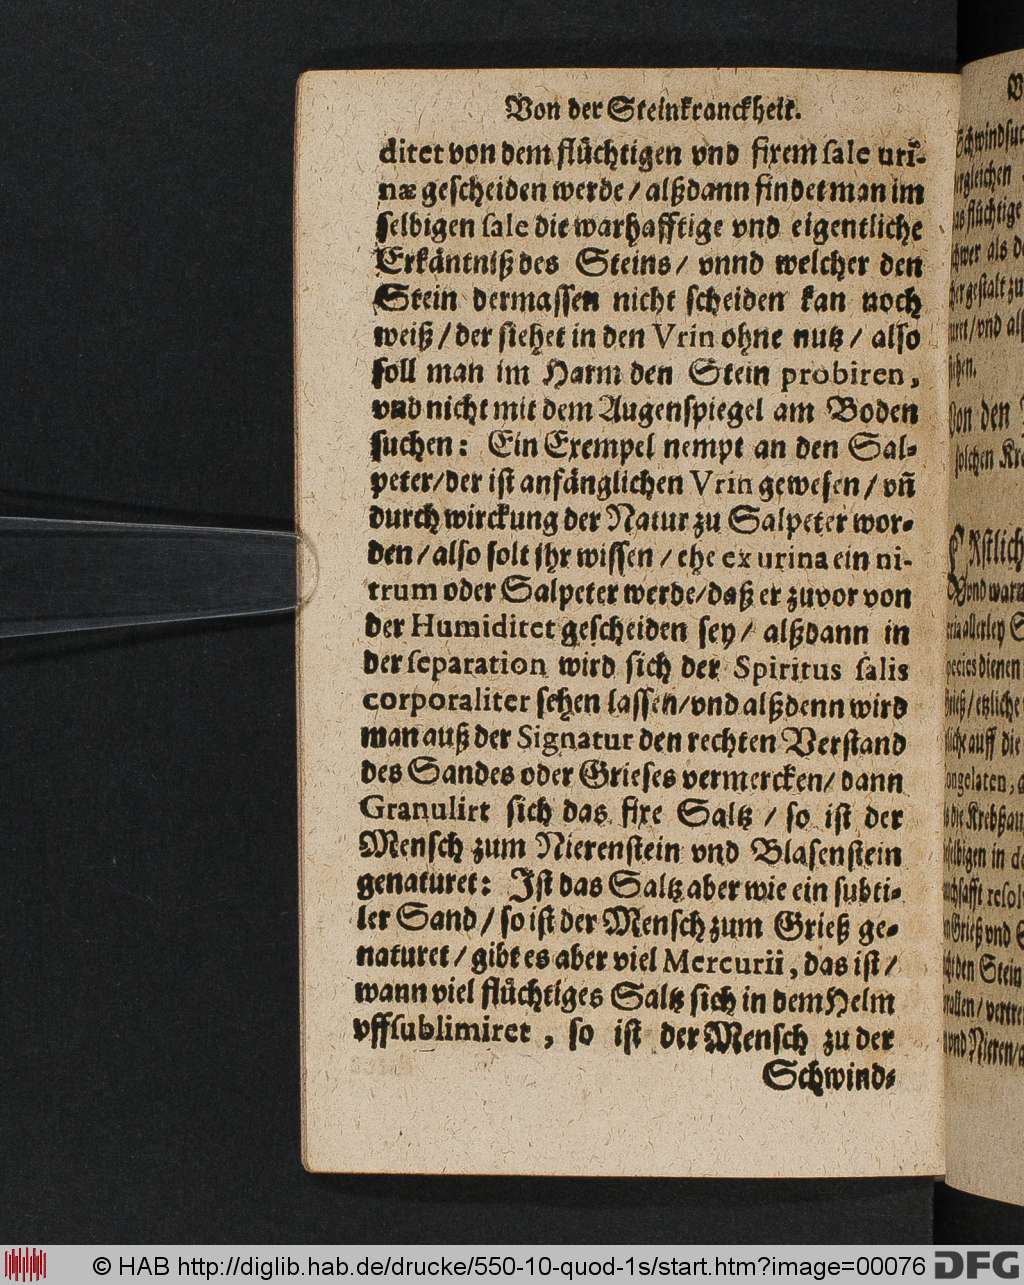 Von der Steinkranckheit.
ditet von dem flüchtigen vnd fixem sale uri-
næ gescheiden werde / alßdann findet man im
selbigen sale die warhafftige vnd eigentliche
Erkäntniß des Steins / vnnd welcher den
Stein dermassen nicht scheiden kan noch
weiß / der siehet in den Vrin ohne nutz / also
soll man im Harm den Stein probiren,
vnd nicht mit dem Augenspiegel am Boden
suchen: Ein Exempel nempt an den Sal-
peter / der ist anfänglichen Vrin gewesen / vñ
durch wirckung der Natur zu Salpeter wor-
den / also solt jhr wissen / ehe ex urina ein ni-
trum oder Salpeter werde / daß er zuvor von
der Humiditet gescheiden sey / alßdann in
der separation wird sich der Spiritus salis
corporaliter sehen lassen / vnd alßdenn wird
man auß der Signatur den rechten Verstand
des Sandes oder Grieses vermercken / dann
Granulirt sich das fixe Saltz / so ist der
Mensch zum Nierenstein vnd Blasenstein
genaturet: Ist das Saltz aber wie ein subti-
ler Sand / so ist der Mensch zum Grieß ge-
naturet / gibt es aber viel Mercurii, das ist /
wann viel flüchtiges Saltz sich in dem Helm
vffsublimiret, so ist der Mensch zu der
Schwind-
Schwindsuc
flüchtige
schwer als d
gestalt zu
vnd als
den
solchen Kr
Vnd waru
allerley S
dienen
etzliche
auff die
die Krebßau
in de
Grieß vnd S
den Stein
vertre
vnd Nieren
© HAB http://diglib.hab.de/drucke/550-10-quod-1s/start.htm?image=00076
DFG